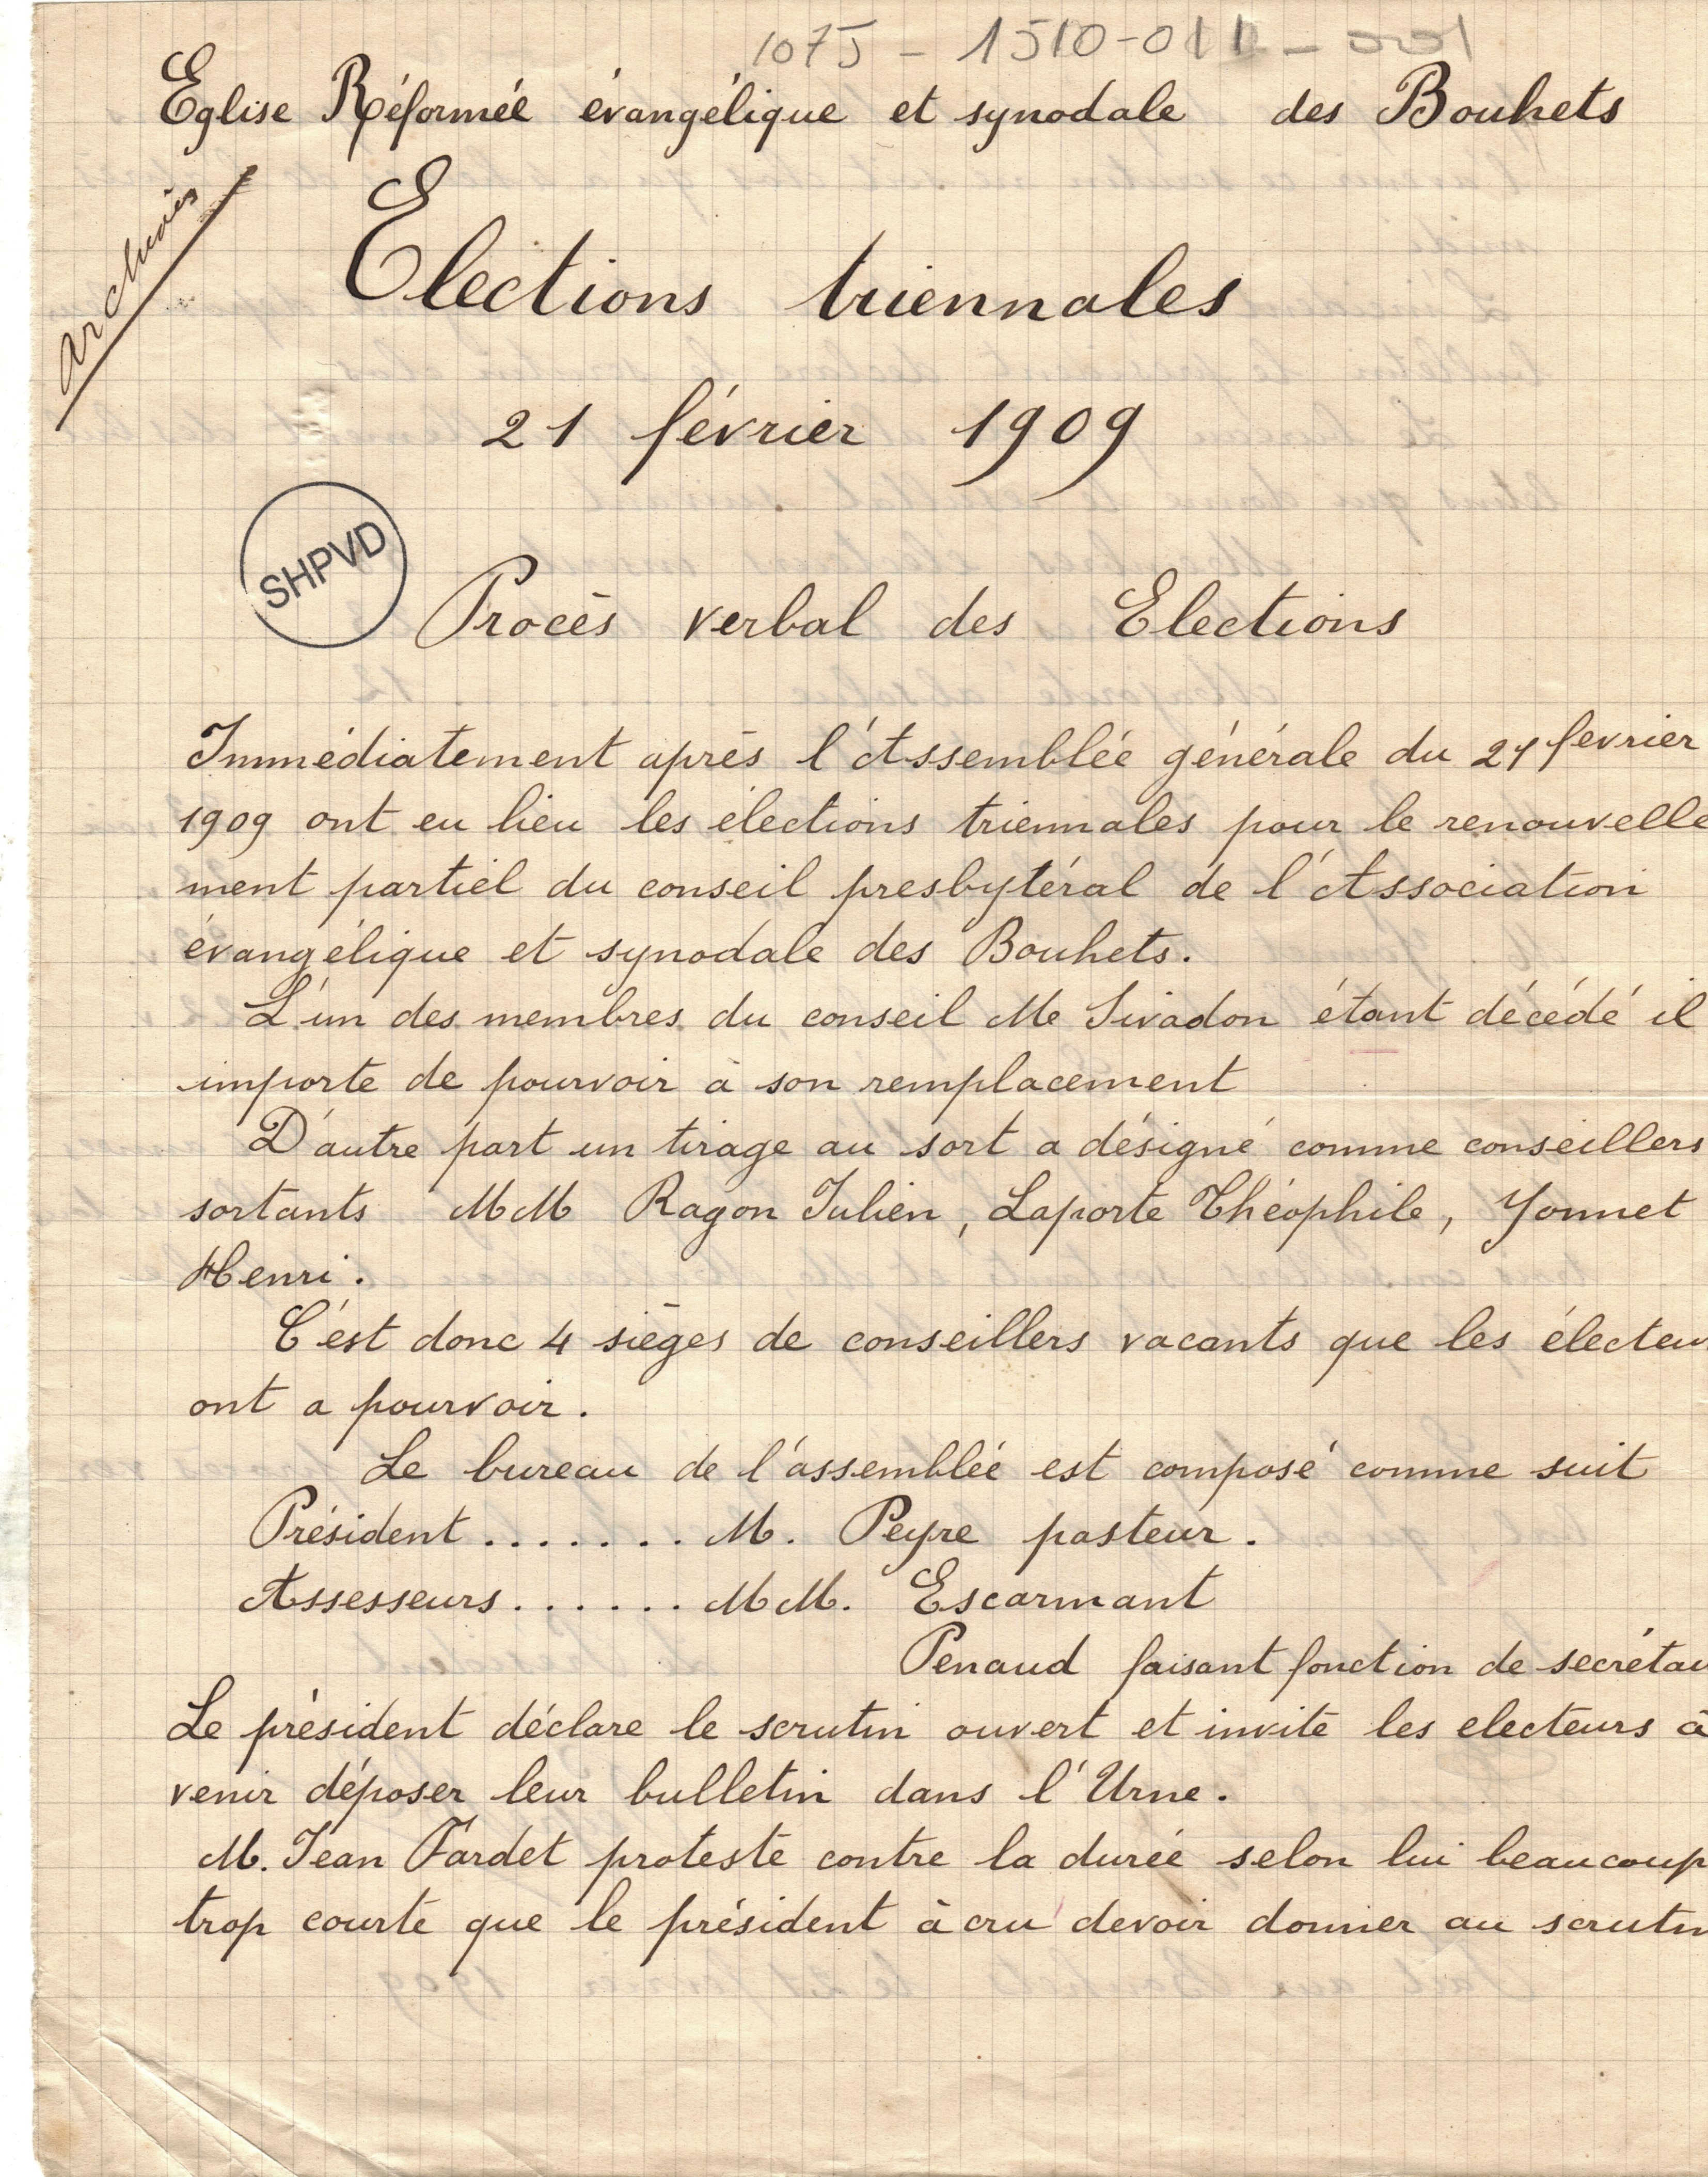 107J - 1510-011-001
Eglise Réformée évangélique et synodale des Bouhets
Archives
Elections triennales
21 février 1909
SHPVD
Procès verbal des Elections
Immédiatement après l'Assemblée générale du 21 fevrier
1909 ont eu lieu les élections triennales pour le renouvelle
ment partiel du conseil presbytéral de l'Association
évangélique et synodale des Bouhets.
L'un des membres du conseil Me Sivadon étant décédé il
importe de pourvoir à son remplacement
D'autre part un tirage au sort a désigné comme conseillers
sortants MM Ragon Julien, Laporte Théophile, Yonnet
Henri.
C'est donc 4 sièges de conseillers vacants que les électeu
ont a pourvoir.
Le bureau de l'assemblée est composé comme suit
Président ....... M. Peyre pasteur.
Assesseurs ...... MM. Escarmant
Penaud faisant fonction de secrétai
Le président déclare le scrutin ouvert et invite les electeurs à
venir déposer leur bulletin dans l'Urne.
M. Jean Fardet proteste contre la durée selon lui beaucoup
trop courte que le président à cru devoir donner au scrutin